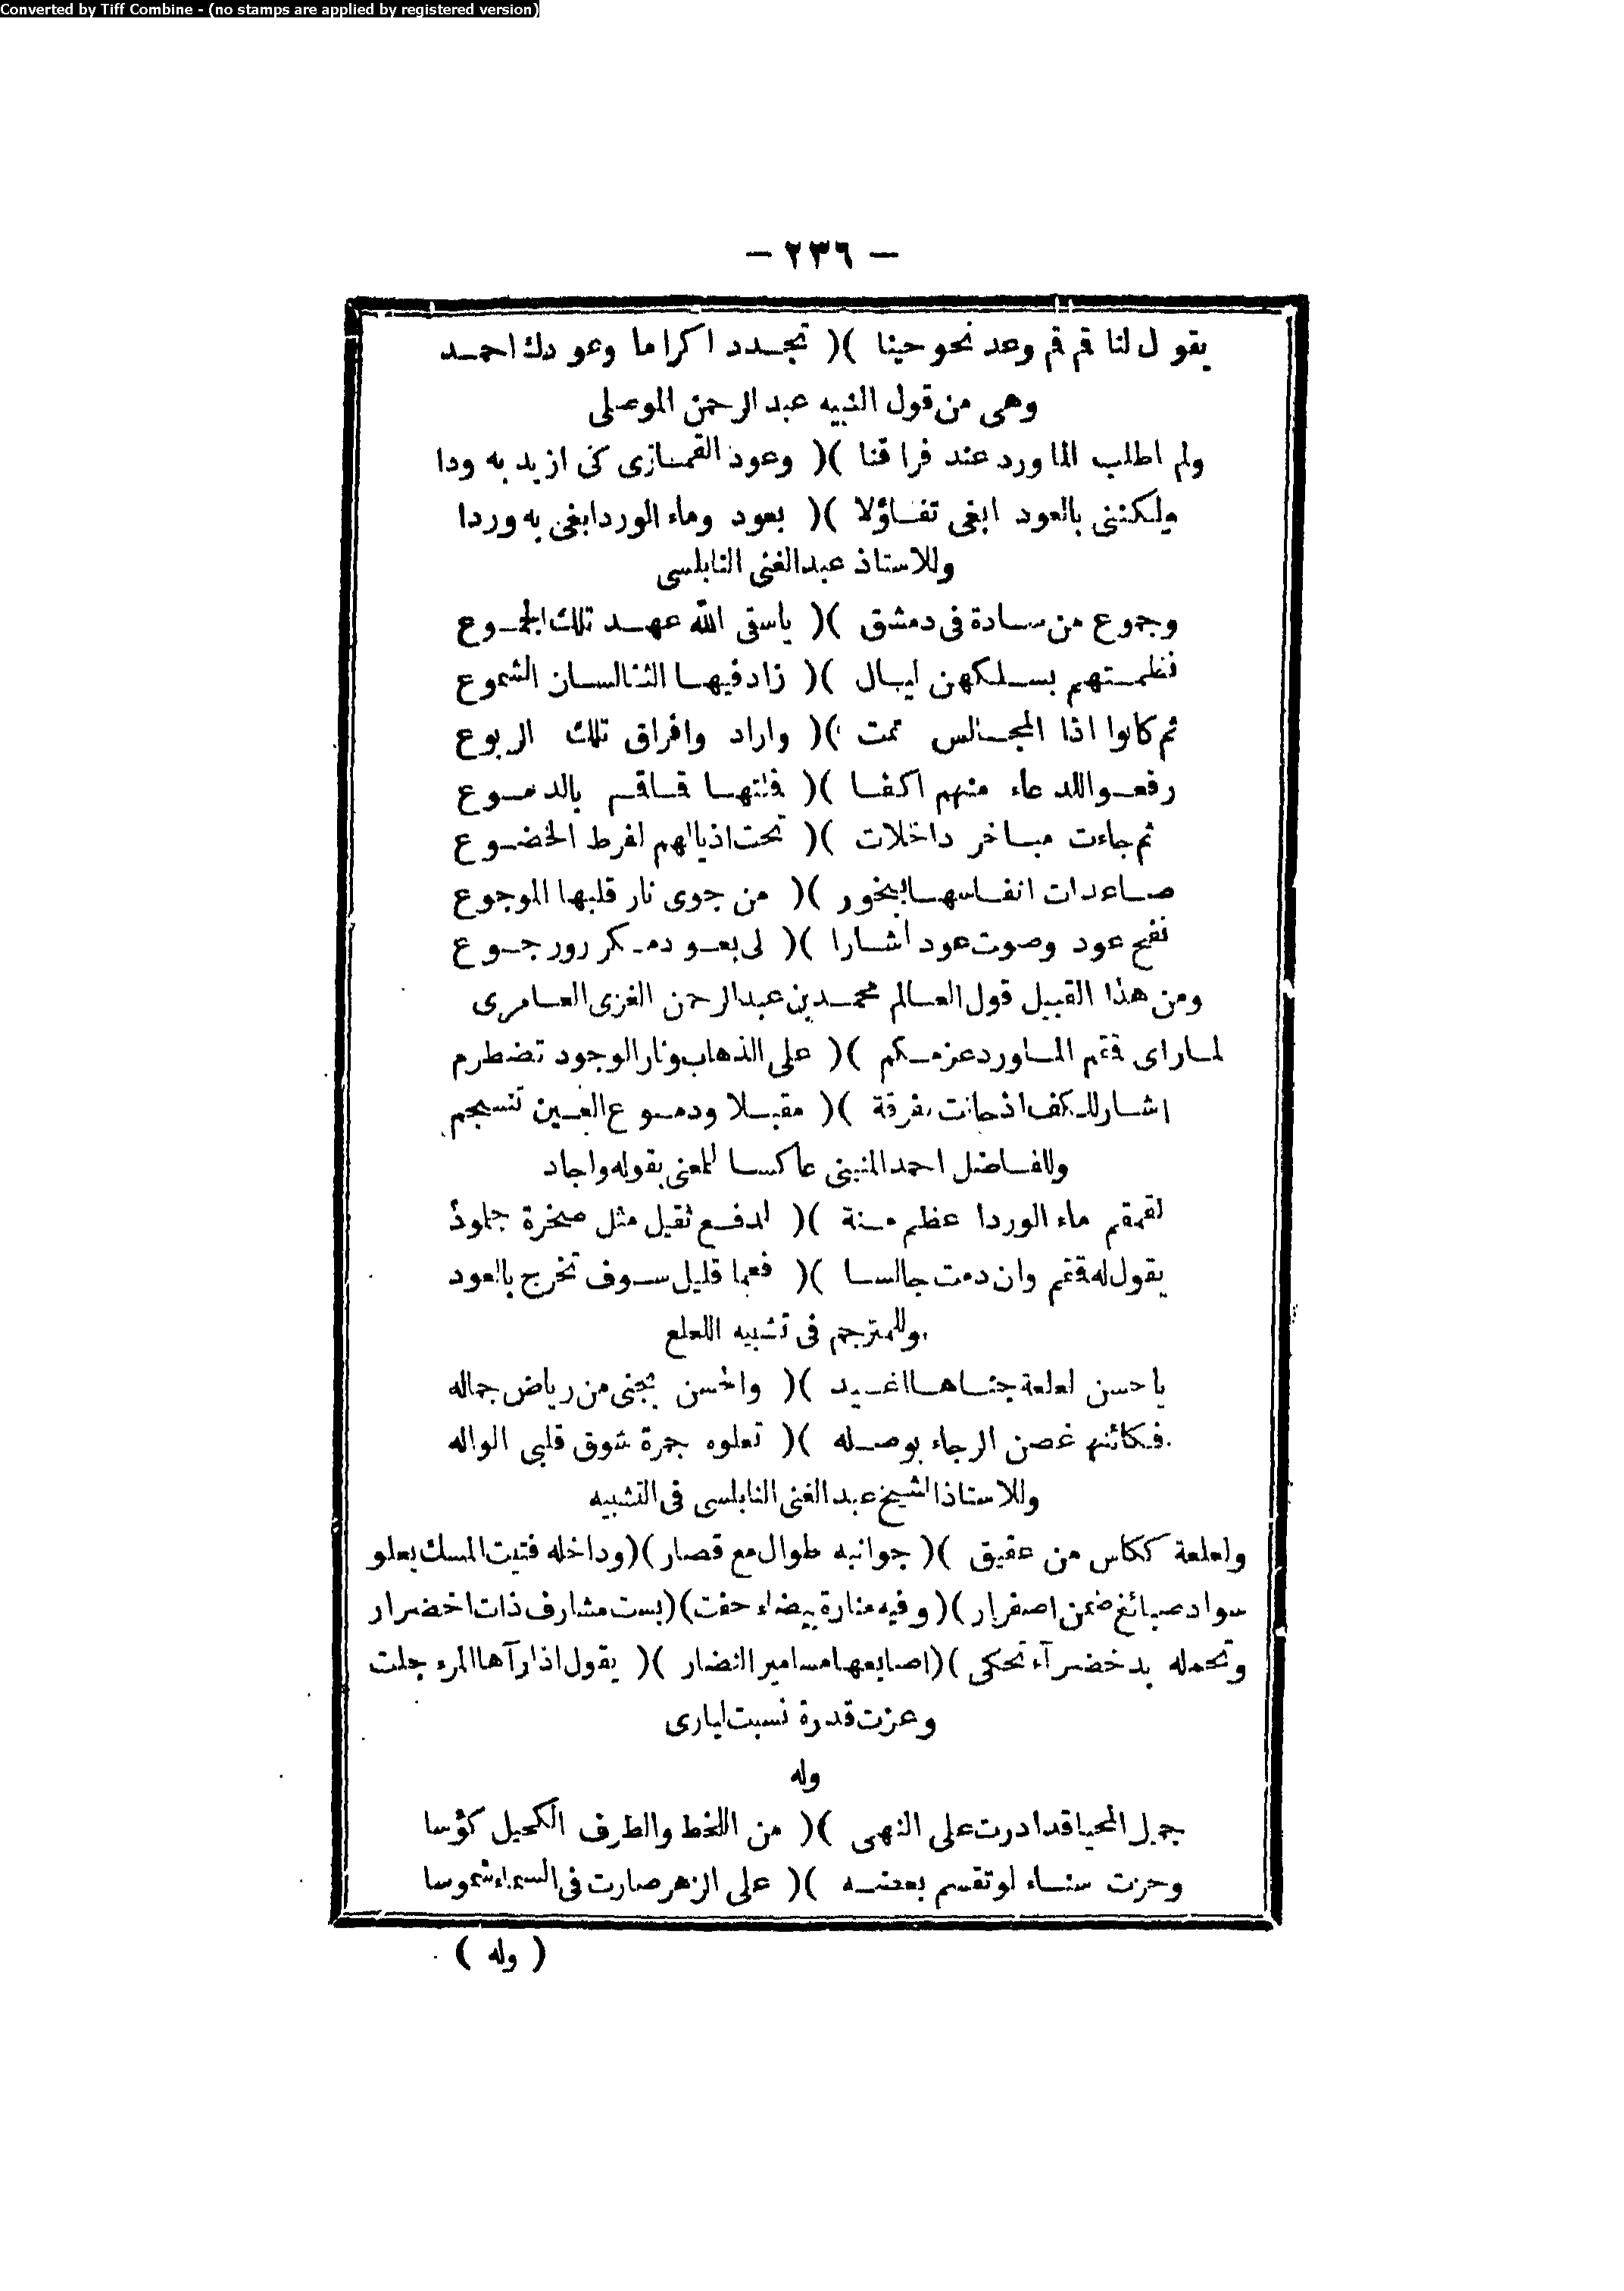 Converted by Tiff Combine - (no stamps are applied by registered version)
— ٢٣٦ —
يقول لنا قم قم وعد نحو حينا )( تجدد اكراما وعودك احمد
وهى من قول النبيه عبد الرحمن الموصلى
ولم اطلب الماورد عند فراقنا )( وعود القمارى كى ازيد به ودا
ولكننى بالعود ابغى تفاؤلا )( بعود وماء الورد ابغى به وردا
وللاستاذ عبد الغنى النابلسى
وجموع من سادة فى دمشق )( ياسقى الله عهد تلك الجموع
نظمتهم بسلكهن ليال )( زاد فيها الثنا لسان الشموع
ثم كانوا اذا المجالس تمت )( واراد وافراق تلك الربوع
رفعوا للدعاء منهم اكفا )( فلتها قماقم بالدموع
ثم جاءت مباخر داخلات )( تحت اذيالهم لفرط الخضوع
صاعدات انفاسها ببخور )( من جوى نار قلبها الموجوع
نفح عود وصوت عود أشارا )( لى بعود مكرر ورجوع
ومن هذا القبيل قول العالم محمد بن عبد الرحمن الغزى العامرى
لما راى قمقم الماورد عزمكم )( على الذهاب ونار الوجود تضطرم
اشار للكف اذ حانت بفرقة )( مقبلا ودموع العين تنسجم
وللفاضل احمد المنينى عاكسا للمعنى بقوله واجاد
لقمقم ماء الورد اعظم منة )( لدفع ثقيل مثل صخرة جلود
يقول له قم قم وان دمت جالسا )( فعما قليل سوف تخرج بالعود
وللمترجم فى تشبيه اللعلع
يا حسن لعلعة جناها اغيد )( والحسن يجنى من رياض جماله
فكأنها غصن الرجاء بوصله )( تعلوه جمرة شوق قلبى الواله
وللاستاذ الشيخ عبد الغنى النابلسى فى التشبيه
ولعلعة ككاس من عقيق )( جوانبه طوال مع قصار )( وداخله فتيت المسك يعلو
سواد صبائغ ضمن اصفرار )( وفيه منارة بيضاء حفت )( بست مشارف ذات اخضرار
وتحمله يد خضرآء تحكى )( اصابعها مسامير النضار )( يقول اذا رآها المرء جلت
وعزت قدرة نسبت لبارى
وله
جميل المحيا قد ادرت على النهى )( من اللحظ والطرف الكحيل كؤسا
وحزت سناء لو تقسم بعضه )( على الزهر صارت فى السماء شموسا
( وله )